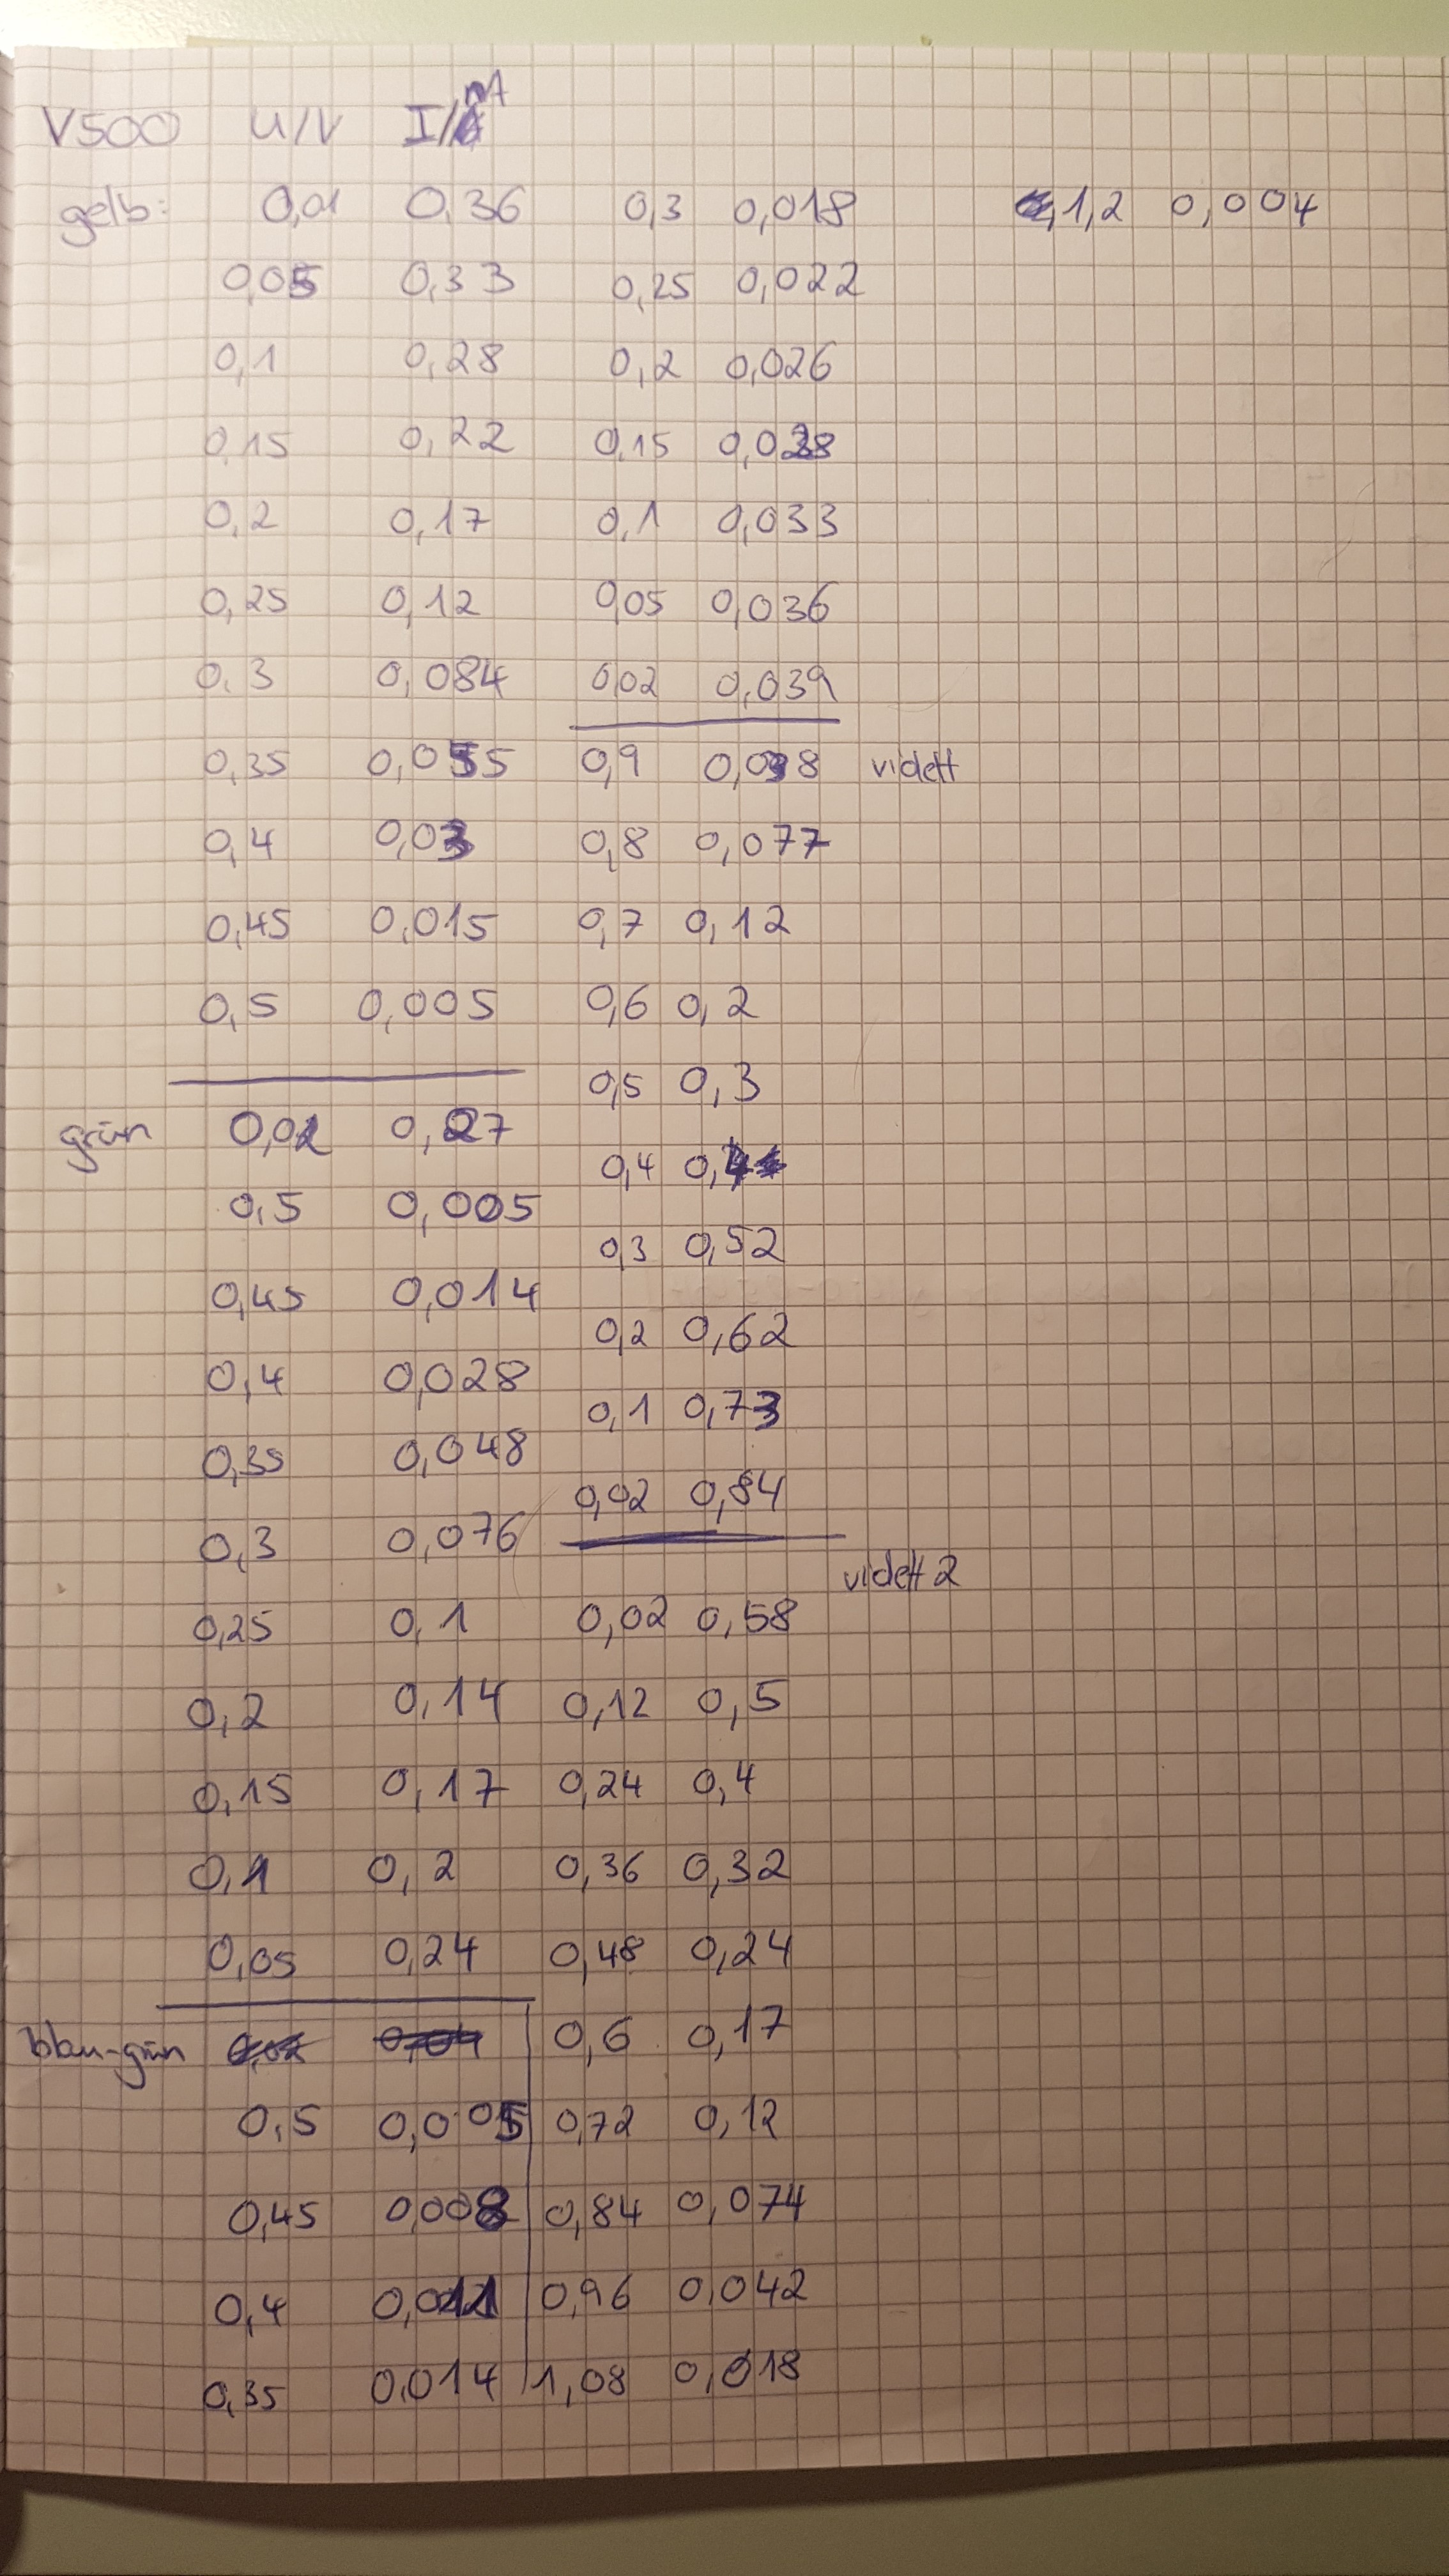 V500 U/V I/nA
gelb: 0,01 0,36
0,05 0,33
0,1 0,28
0,15 0,22
0,2 0,17
0,25 0,12
0,3 0,084
0,35 0,055
0,4 0,03
0,45 0,015
0,5 0,005
grün 0,02 0,27
0,5 0,005
0,45 0,014
0,4 0,028
0,35 0,048
0,3 0,076
0,25 0,1
0,2 0,14
0,15 0,17
0,1 0,2
0,05 0,24
blau-grün
0,5 0,005
0,45 0,008
0,4 0,011
0,35 0,014
0,3 0,018
0,25 0,022
0,2 0,026
0,15 0,028
0,1 0,033
0,05 0,036
0,02 0,039
0,9 0,038 violett
0,8 0,077
0,7 0,12
0,6 0,2
0,5 0,3
0,4
0,3 0,52
0,2 0,62
0,1 0,73
0,02 0,84
violett 2
0,02 0,58
0,12 0,5
0,24 0,4
0,36 0,32
0,48 0,24
0,6 0,17
0,72 0,12
0,84 0,074
0,96 0,042
1,08 0,018
1,2 0,004